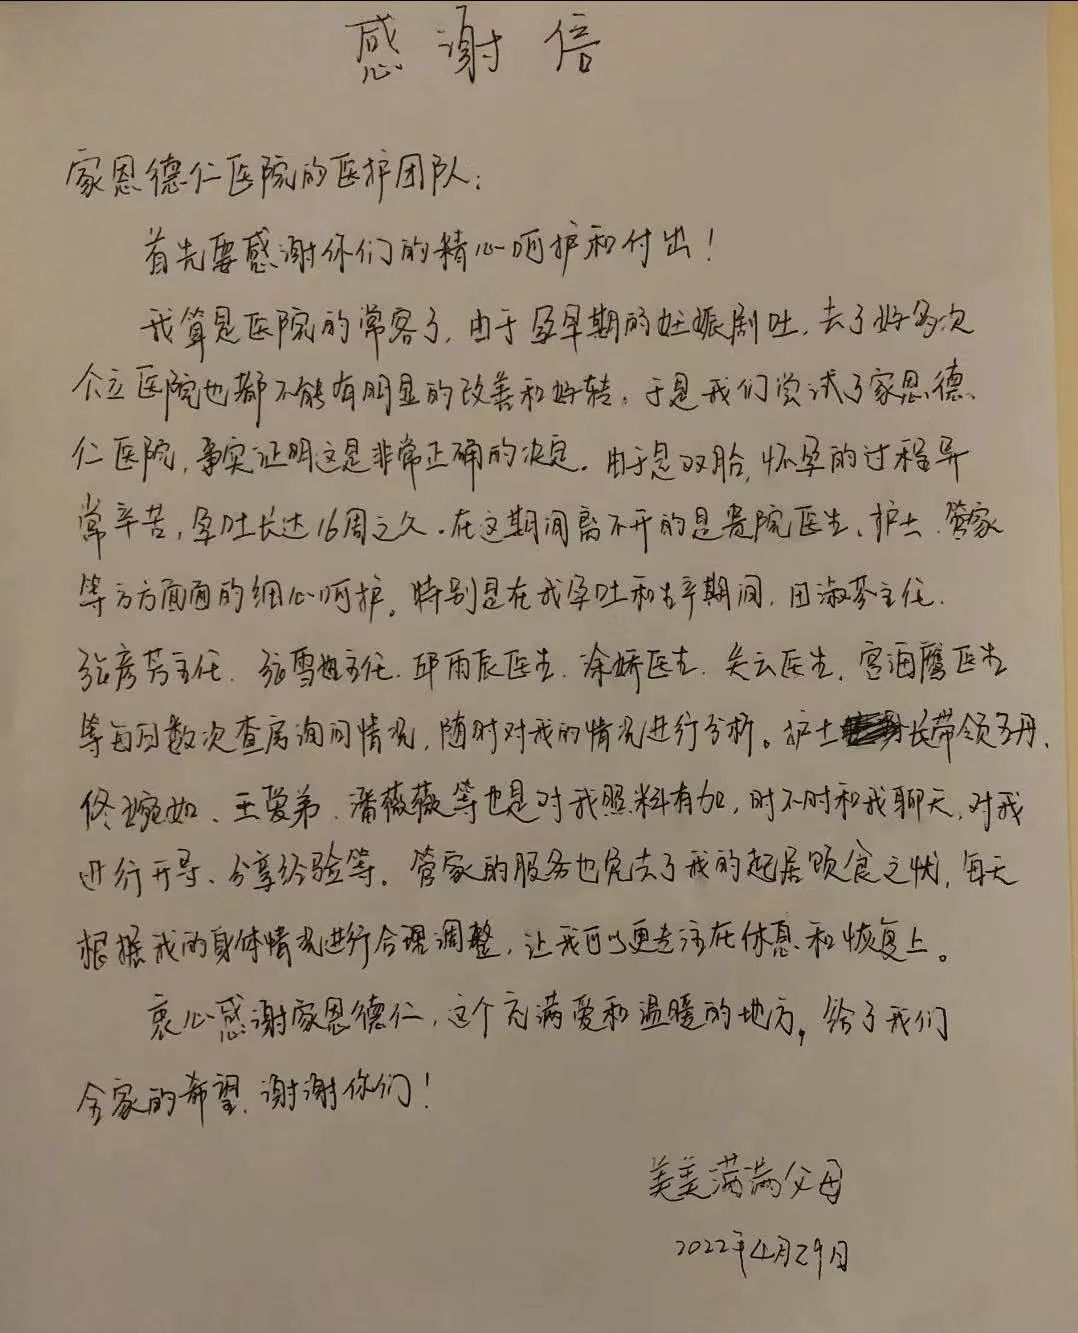 感谢信
家恩德仁医院的医护团队：
首先要感谢你们的精心呵护和付出！
我算是医院的常客了，由于孕早期的妊娠剧吐，去了好多次
公立医院也都不能有明显的改善和好转。于是我们尝试了家恩德
仁医院，事实证明这是非常正确的决定。由于是双胎，怀孕的过程异
常辛苦，孕吐长达16周之久。在这期间离不开的是贵院医生、护士、管家
等方方面面的细心呵护。特别是在我孕吐和生产期间，田淑芬主任、
张彦芳主任、张雪姐主任、邱雨辰医生、涂娇医生、关云医生、宫海鹰医生
等每日数次查房询问情况，随时对我的情况进行分析。护士长带领
佟琬如、王爱弟、潘薇薇等也是对我照料有加，时不时和我聊天，对我
进行开导、分享经验等。管家的服务也免去了我的起居饮食之忧，每天
根据我的身体情况进行合理调整，让我可以更专注在休息和恢复上。
衷心感谢家恩德仁，这个充满爱和温暖的地方，给了我们
全家的希望，谢谢你们！
美美满满父母
2022年4月29日